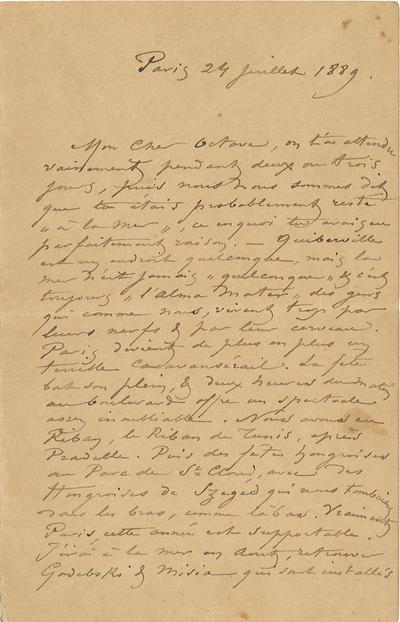 Paris 24 juillet 1889.
Mon cher Octave, on t'a attendu
vainement pendant deux ou trois
jours, puis nous nous sommes dit
que tu étais probablement resté
"à la mer", ce en quoi tu avais eu
parfaitement raison. — Quiberville
est un endroit quelconque, mais la
mer n'est jamais "quelconque" & c'est
toujours "l'alma Mater" des gens
qui comme nous, vivent trop par
leurs nerfs & par leur cerveau.
Paris devient de plus en plus un
terrible caravansérail. La fête
bat son plein, & deux heures du matin
au boulevard offre un spectacle
assez inoubliable. Nous avons eu
Riban, le Riban de Tunis, après
Pradelle. Puis des fêtes hongroises
au Parc de St Cloud, avec des
Hongroises de Szeged qui nous tombaient
dans les bras, comme là-bas. Vraiment
Paris, cette année est supportable.
J'irai à la mer en Août, retrouver
Godebski & Misia qui sont installés